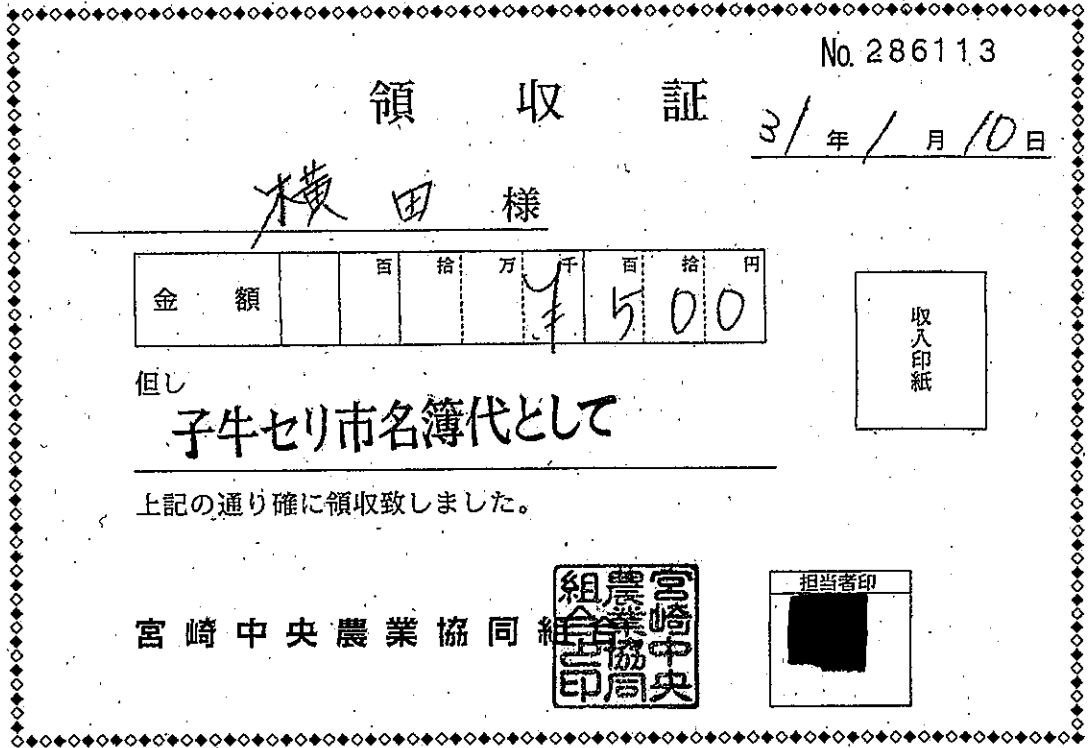 No. 286113
領収証
31年1月10日
横田様
金額 百 拾 万 千 百 拾 円
¥500
但し
子牛セリ市名簿代として
収入印紙
上記の通り確に領収致しました。
宮崎中央農業協同組合
宮崎中央農業協同組合之印
担当者印